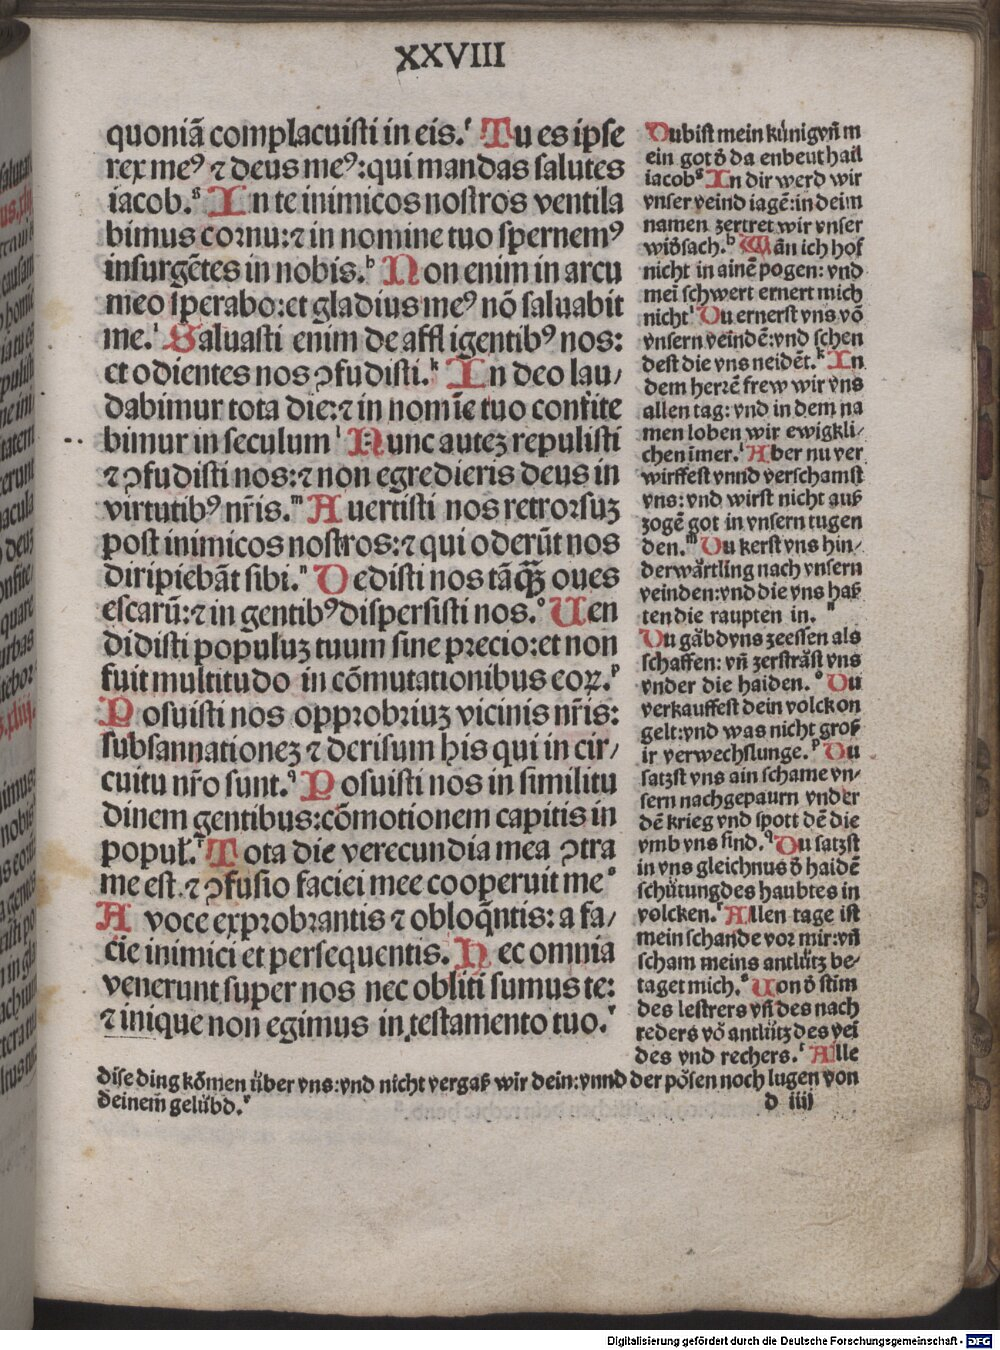 XXVIII
quoniā complacuisti in eis.ᶠ Tu es ipse
rex meꝰ ⁊ deus meꝰ: qui mandas salutes
iacob.ᵍ In te inimicos nostros ventila
bimus cornu: ⁊ in nomine tuo spernemꝰ
insurgētes in nobis.ʰ Non enim in arcu
meo sperabo: et gladius meꝰ nō saluabit
me.ⁱ Saluasti enim de affligentibꝰ nos:
et odientes nos ꝯfudisti.ᵏ In deo lau/
dabimur tota die: ⁊ in nomīe tuo confite
bimur in seculum ˡ Nunc autez repulisti
⁊ ꝯfudisti nos: ⁊ non egredieris deus in
virtutibꝰ nr̄is.ᵐ Auertisti nos retrorsuz
post inimicos nostros: ⁊ qui oderūt nos
diripiebāt sibi.ⁿ Dedisti nos tāqꝫ oues
escarū: ⁊ in gentibꝰ dispersisti nos.ᵒ Uen
didisti populuz tuum sine precio: et non
fuit multitudo in cōmutationibus eoꝝ.ᵖ
Posuisti nos opprobriuz vicinis nr̄is:
subsannationez ⁊ derisum his qui in cir/
cuitu nr̄o sunt.ᑫ Posuisti nos in similitu
dinem gentibus: cōmotionem capitis in
popuł.ʳ Tota die verecundia mea ꝯtra
me est. ⁊ ꝯfusio faciei mee cooperuit me ˢ
A voce exprobrantis ⁊ obloq̄ntis: a fa/
cie inimici et persequentis. Hec omnia
venerunt super nos nec obliti sumus te:
⁊ inique non egimus in testamento tuo.ᵗ
Du bist mein künig vn̄ m
ein got ð da enbeut hail
iacob ᵍ In dir werd wir
vnser veind iagē: in deim
namen zertret wir vnser
wiðsach.ʰ Wān ich hof
nicht in ainē pogen: vnd
mei schwert ernert mich
nichtⁱ Du ernerst vns vō
vnsern veindē: vnd schen
dest die vns neidēt.ᵏ In
dem herrē frew wir vns
allen tag: vnd in dem na
men loben wir ewigkli/
chen īmer.ˡ Aber nu ver
wirffest vnnd verschamst
vns: vnd wirst nicht auß
zogē got in vnsern tugen
den.ᵐ Du kerst vns hin/
derwårtling nach vnsern
veinden: vnd die vns haß
ten die raupten in.ⁿ
Du gåbd vns ze essen als
schaffen: vn̄ zerstråst vns
vnder die haiden.ᵒ Du
verkauffest dein volck on
gelt: vnd was nicht groß
ir verwechslunge.ᵖ Du
satzst vns ain schame vn/
sern nachgepaurn vnder
dē krieg vnd spott dē die
vmb vns sind.ᑫ Du satzst
in vns gleichnus ð haidē
schütung des haubtes in
volcken.ʳ Allen tage ist
mein schande vor mir: vn̄
scham meins antlütz be/
taget mich.ˢ Uon ð stim
des lestrers vn̄ des nach
reders vō antlütz des vei
des vnd rechers.ᵗ Alle
dise ding kōmen über vns: vnd nicht vergaß wir dein: vnnd der pösen noch lugen von
deinem̄ gelübd.ᵛ
d iiij
Digitalisierung gefördert durch die Deutsche Forschungsgemeinschaft - DFG